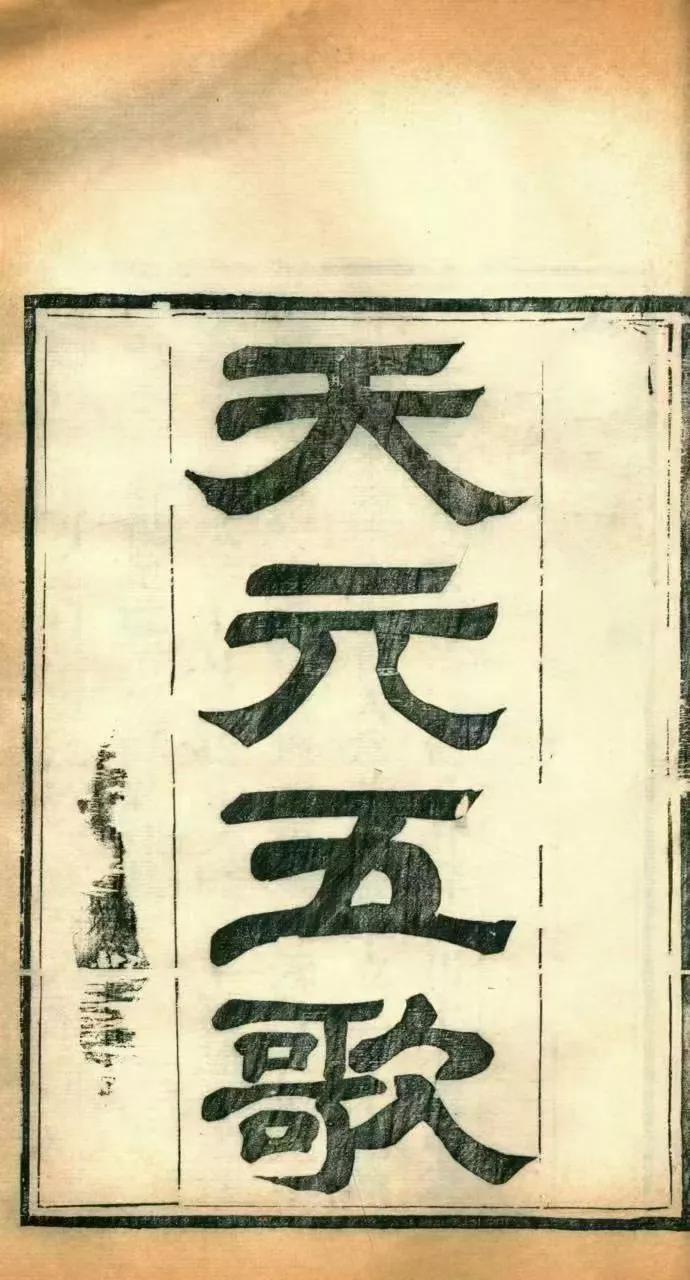 天元五歌